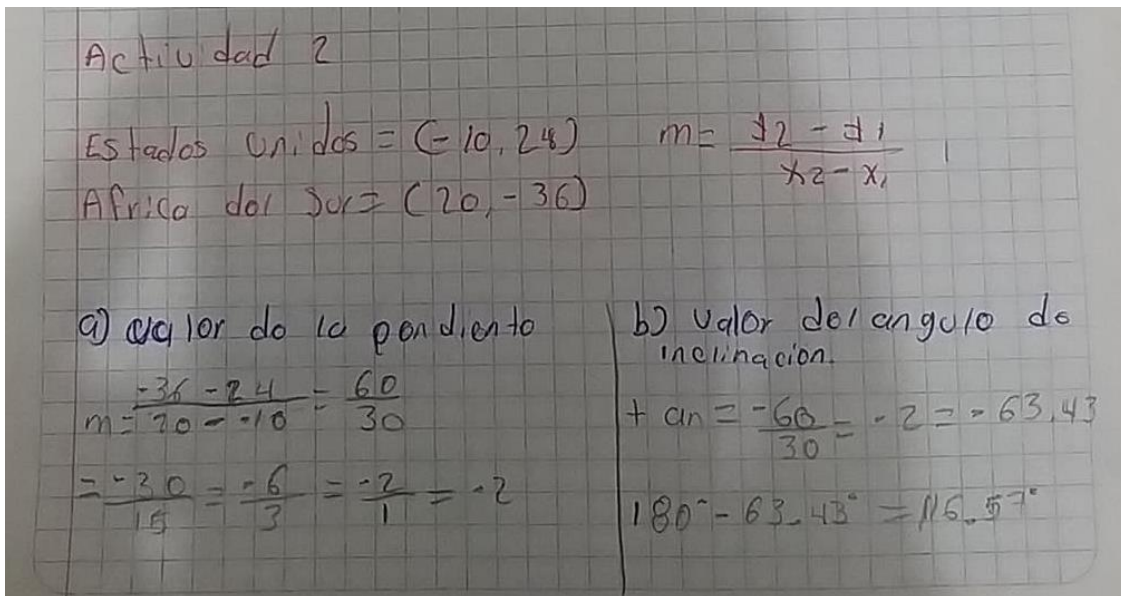 Actividad 2
Estados Unidos = (-10, 24)
Africa del Sur = (20, -36)
m = y2 - y1 / x2 - x1
a) valor de la pendiente
m = -36 - 24 / 20 - -10 = 60 / 30
= -30 / 15 = -6 / 3 = -2 / 1 = -2
b) Valor del angulo de
inclinacion.
tan = -60 / 30 = -2 = -63.43
180° - 63.43° = 116.57°